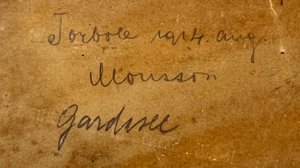 Torbole 1914. aug.
Mousson
Gardasee